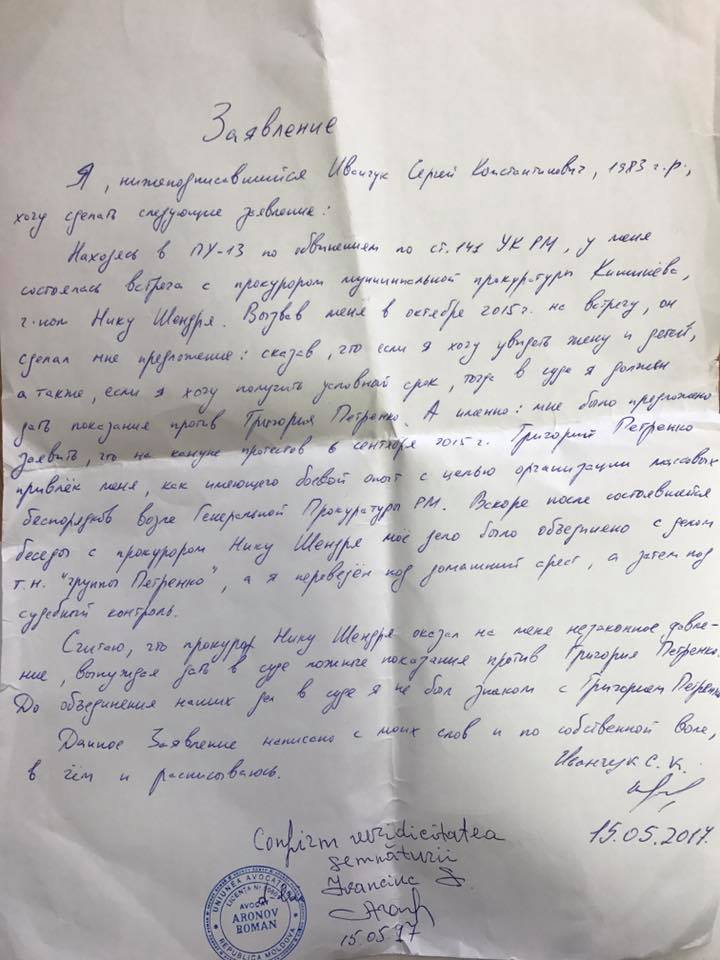 Заявление
Я, нижеподписавшийся Иванчук Сергей Константинович, 1983 г.р.,
хочу сделать следующие заявление:
Находясь в ПУ-13 по обвинениям по ст. 141 УК РМ, у меня
состоялась встреча с прокурором муниципальной прокуратуры Кишинёва,
г-ном Нику Шендря. Вызвав меня в октябре 2015 г. на встречу, он
сделал мне предложение: сказав, что если я хочу увидеть жену и детей,
а также, если я хочу получить условный срок, тогда в суде я должен
дать показания против Григория Петренко. А именно: мне было предложено
заявить, что на кануне протестов в сентября 2015 г. Григорий Петренко
привлёк меня, как имеющего боевой опыт с целью организации массовых
беспорядков возле Генеральной Прокуратуры РМ. Вскоре после состоявшейся
беседы с прокурором Нику Шендря моё дело было объединено с делом
т.н. "группы Петренко", а я переведён под домашний арест, а затем под
судебный контроль.
Считаю, что прокурор Нику Шендря оказал на меня незаконное давле-
ние, вынуждая дать в суде ложные показания против Григория Петренко.
До объединения наших дел в суде я не был знаком с Григорием Петренко
Данное Заявление написано с моих слов и по собственной воле,
в чём и расписываюсь.
Иванчук С. К.
15.05.2017.
Confirm veridicitatea
semnăturii
Ivanciuc S.
15.05.17
UNIUNEA AVOCAȚILOR
LICENȚA Nr.
AVOCAT
ARONOV
ROMAN
REPUBLICA MOLDOVA